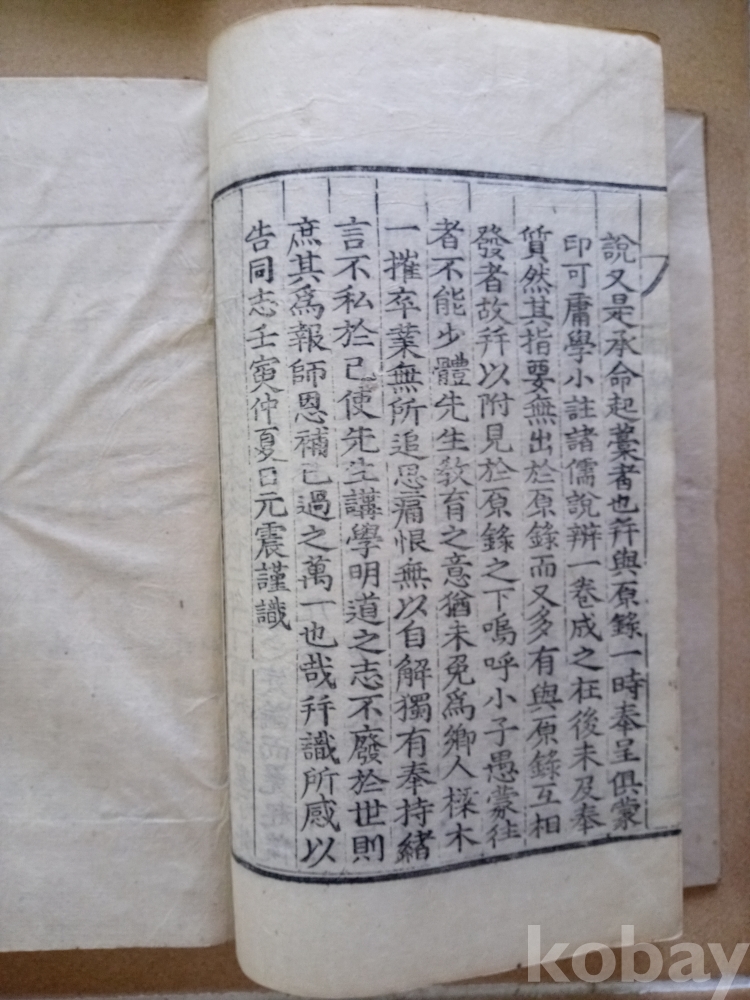 說又是承命起藁者也幷與原錄一時奉呈俱蒙
印可庸學小註諸儒說辨一卷成之在後未及奉
質然其指要無出於原錄而又多有與原錄互相
發者故幷以附見於原錄之下嗚呼小子愚蒙往
者不能少體先生敎育之意猶未免爲鄕人樑木
一摧卒業無所追思痛恨無以自解獨有奉持緖
言不私於己使先生講學明道之志不廢於世則
庶其爲報師恩補己過之萬一也哉幷識所感以
告同志壬寅仲夏日元震謹識
kobay